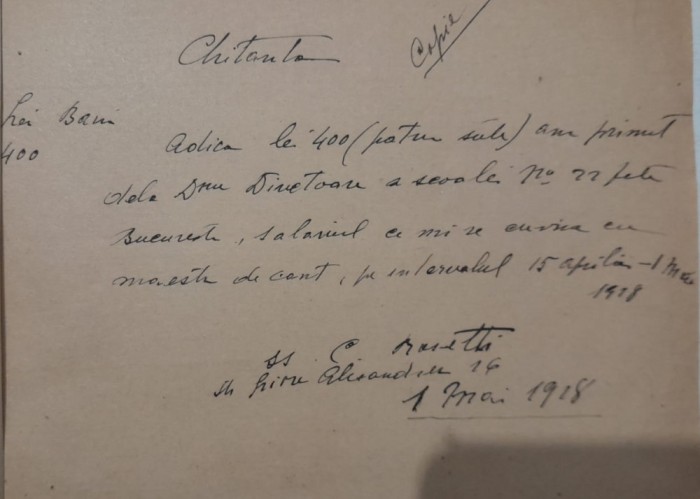 Chitanta
Copie
Lei Bani
400
Adica lei 400 (patru sute) am primit
dela Dna Directoare a scoalei No 22 fete
Bucuresti, salariul ce mi se cuvine ca
maestra de cant, pe intervalul 15 Aprilie - 1 Mai
1918
ss C Rosetti
Alexandru 16
1 Mai 1918